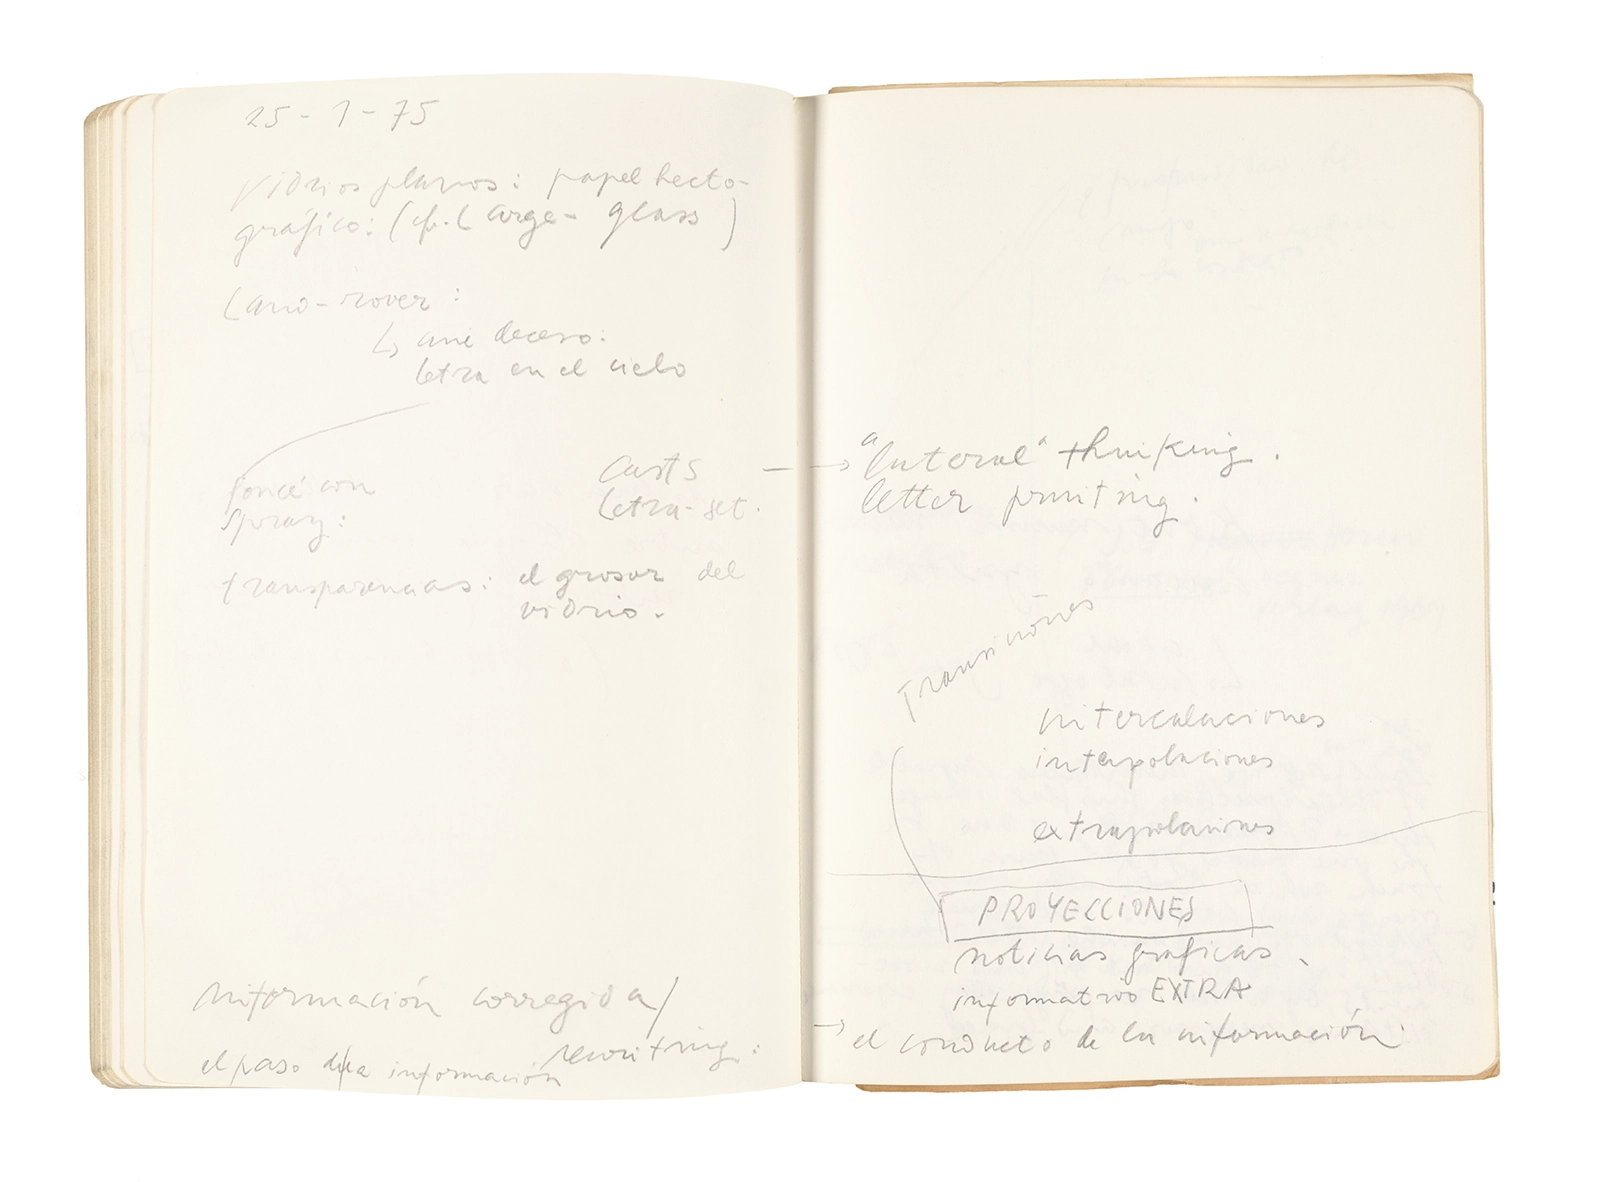 25-1-75
vidrios planos: papel hecto-
gráfico: (cfr. Large-glass)
Land-rover:
↳ ani deceso:
letra en el cielo
con
spray:
casts
letra-set.
transparencias: el grosor del
vidrio.
información corregida/
rewriting:
el paso de la información
→ "lateral" thinking.
letter printing.
Transiciones
intercalaciones
interpolaciones
extrapolaciones
PROYECCIONES
noticias graficas.
informativo EXTRA
→ el conducto de la información